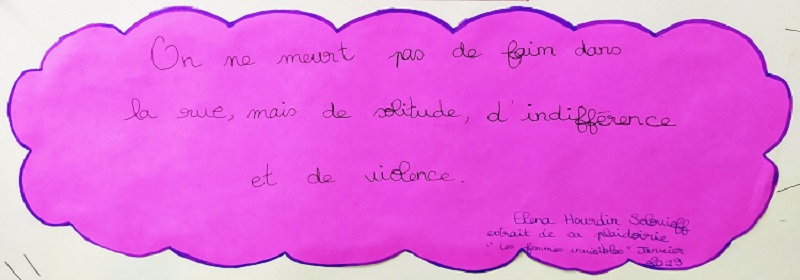 On ne meurt pas de faim dans
la rue, mais de solitude, d'indifférence
et de violence.
Elena Hourdin Solovieff
extrait de sa plaidoirie
"les femmes invisibles" Janvier
2019